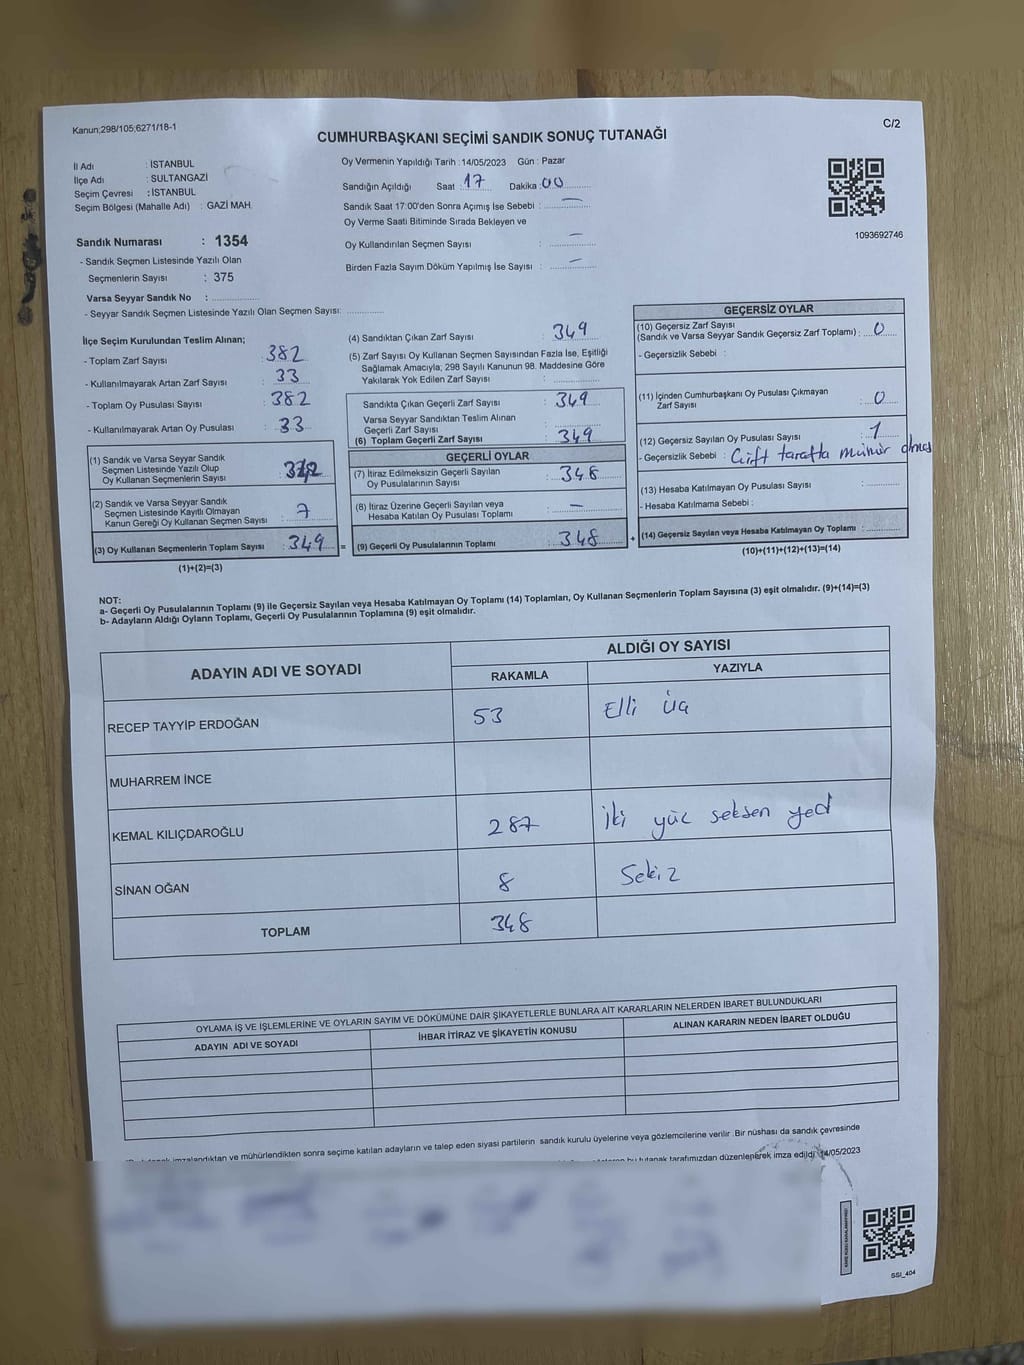 Kanun;298/105;6271/18-1
C/2
CUMHURBAŞKANI SEÇİMİ SANDIK SONUÇ TUTANAĞI
İl Adı : İSTANBUL
İlçe Adı : SULTANGAZİ
Seçim Çevresi : İSTANBUL
Seçim Bölgesi (Mahalle Adı) : GAZİ MAH.
Sandık Numarası : 1354
- Sandık Seçmen Listesinde Yazılı Olan
Seçmenlerin Sayısı : 375
Varsa Seyyar Sandık No :
- Seyyar Sandık Seçmen Listesinde Yazılı Olan Seçmen Sayısı:
Oy Vermenin Yapıldığı Tarih : 14/05/2023 Gün : Pazar
Sandığın Açıldığı Saat : 17 Dakika : 00
Sandık Saat 17:00'den Sonra Açımış İse Sebebi : —
Oy Verme Saati Bitiminde Sırada Bekleyen ve
Oy Kullandırılan Seçmen Sayısı : —
Birden Fazla Sayım Döküm Yapılmış İse Sayısı : —
1093692746
İlçe Seçim Kurulundan Teslim Alınan;
- Toplam Zarf Sayısı : 382
- Kullanılmayarak Artan Zarf Sayısı : 33
- Toplam Oy Pusulası Sayısı : 382
- Kullanılmayarak Artan Oy Pusulası : 33
(1) Sandık ve Varsa Seyyar Sandık
Seçmen Listesinde Yazılı Olup
Oy Kullanan Seçmenlerin Sayısı :
(2) Sandık ve Varsa Seyyar Sandık
Seçmen Listesinde Kayıtlı Olmayan
Kanun Gereği Oy Kullanan Seçmen Sayısı : 7
(3) Oy Kullanan Seçmenlerin Toplam Sayısı : 349 =
(1)+(2)=(3)
(4) Sandıktan Çıkan Zarf Sayısı : 349
(5) Zarf Sayısı Oy Kullanan Seçmen Sayısından Fazla İse, Eşitliği
Sağlamak Amacıyla; 298 Sayılı Kanunun 98. Maddesine Göre
Yakılarak Yok Edilen Zarf Sayısı :
Sandıkta Çıkan Geçerli Zarf Sayısı : 349
Varsa Seyyar Sandıktan Teslim Alınan
Geçerli Zarf Sayısı :
(6) Toplam Geçerli Zarf Sayısı : 349
GEÇERLİ OYLAR
(7) İtiraz Edilmeksizin Geçerli Sayılan
Oy Pusulalarının Sayısı : 348
(8) İtiraz Üzerine Geçerli Sayılan veya
Hesaba Katılan Oy Pusulası Toplamı : —
(9) Geçerli Oy Pusulalarının Toplamı : 348 +
GEÇERSİZ OYLAR
(10) Geçersiz Zarf Sayısı
(Sandık ve Varsa Seyyar Sandık Geçersiz Zarf Toplamı) : 0
- Geçersizlik Sebebi :
(11) İçinden Cumhurbaşkanı Oy Pusulası Çıkmayan
Zarf Sayısı : 0
(12) Geçersiz Sayılan Oy Pusulası Sayısı : 1
- Geçersizlik Sebebi : Çift tarafta mühür olması
(13) Hesaba Katılmayan Oy Pusulası Sayısı :
- Hesaba Katılmama Sebebi :
(14) Geçersiz Sayılan veya Hesaba Katılmayan Oy Toplamı :
(10)+(11)+(12)+(13)=(14)
NOT:
a- Geçerli Oy Pusulalarının Toplamı (9) ile Geçersiz Sayılan veya Hesaba Katılmayan Oy Toplamı (14) Toplamları, Oy Kullanan Seçmenlerin Toplam Sayısına (3) eşit olmalıdır. (9)+(14)=(3)
b- Adayların Aldığı Oyların Toplamı, Geçerli Oy Pusulalarının Toplamına (9) eşit olmalıdır.
ADAYIN ADI VE SOYADI
ALDIĞI OY SAYISI
RAKAMLA YAZIYLA
RECEP TAYYİP ERDOĞAN 53 Elli Üç
MUHARREM İNCE
KEMAL KILIÇDAROĞLU 287 İki yüz seksen yedi
SİNAN OĞAN 8 Sekiz
TOPLAM 348
OYLAMA İŞ VE İŞLEMLERİNE VE OYLARIN SAYIM VE DÖKÜMÜNE DAİR ŞİKAYETLERLE BUNLARA AİT KARARLARIN NELERDEN İBARET BULUNDUKLARI
ADAYIN ADI VE SOYADI İHBAR İTİRAZ VE ŞİKAYETİN KONUSU ALINAN KARARIN NEDEN İBARET OLDUĞU
imzalandıktan ve mühürlendikten sonra seçime katılan adayların ve talep eden siyasi partilerin sandık kurulu üyelerine veya gözlemcilerine verilir .Bir nüshası da sandık çevresinde
bu tutanak tarafımızdan düzenlenerek imza edildi. 14/05/2023
SSI_404